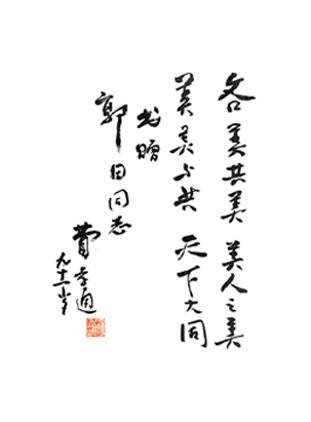 各美其美 美人之美
美美与共 天下大同
书赠
郭田同志
费孝通
九十一岁